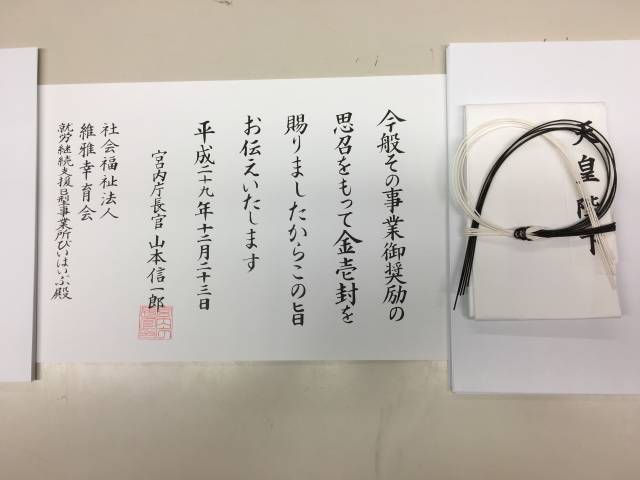 天皇陛下
今般その事業御奨励の
思召をもって金壱封を
賜りましたからこの旨
お伝えいたします
平成二十九年十二月二十三日
宮内庁長官 山本信一郎
社会福祉法人
維雅幸育会
就労継続支援B型事業所びいはいぶ殿